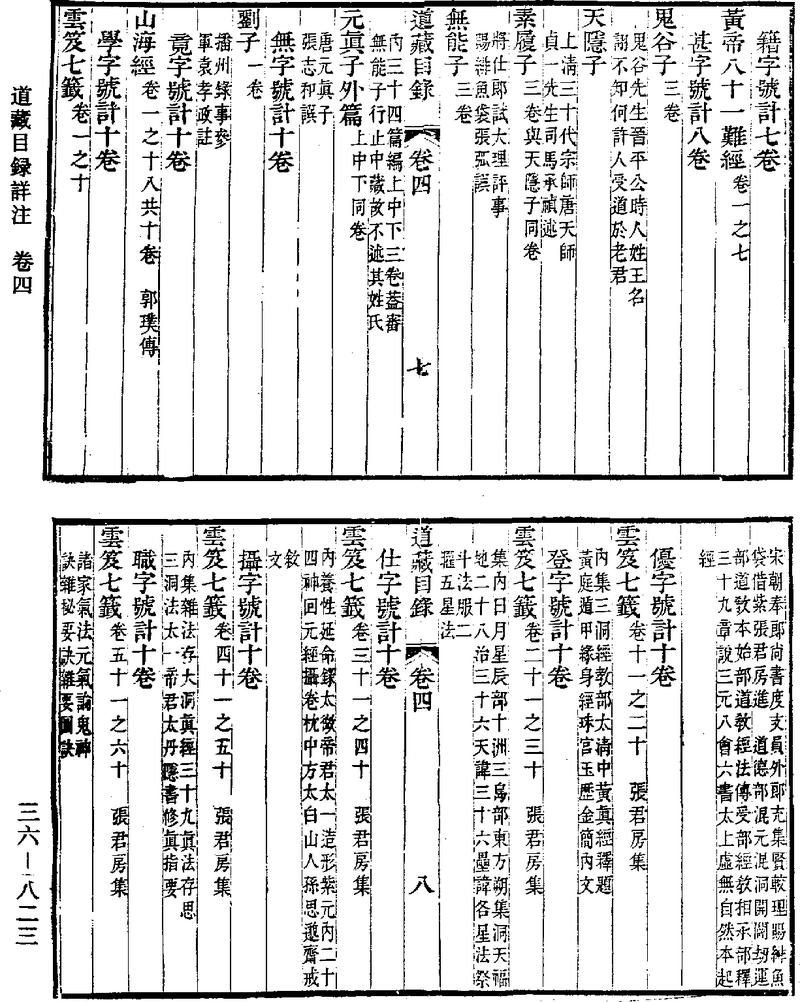 籍字號計七卷
黃帝八十一難經 卷一之七
甚字號計八卷
鬼谷子 三卷
鬼谷先生晉平公時人姓王名
詡不知何許人受道於老君
天隱子
上清三十代宗師唐天師
貞一先生司馬承禎述
素履子 三卷與天隱子同卷
將仕郎試大理評事
賜緋魚袋張弧撰
無能子 三卷
道藏目録 卷四 七
内三十四篇編上中下三卷蓋審
無能子行止中藏故不述其姓氏
元真子外篇 上中下同卷
唐元真子
張志和譔
無字號計十卷
劉子 一卷
播州録事參
軍袁孝政註
竟字號計十卷
山海經 卷一之十八共十卷 郭璞傳
學字號計十卷
雲笈七籤 卷一之十
道藏目録詳注 卷四
宋朝奉郎尚書度支員外郎充集賢校理賜緋魚
袋借紫張君房進 道德部混元混洞開闢劫運
部道教本始部道教經法傳受部經教相承部釋
三十九章說三元八會六書太上虛無自然本起
經
優字號計十卷
雲笈七籤 卷十一之二十 張君房集
内集三洞經教部太清中黃真經釋題
黃庭遁甲緣身經珠宮玉歷金簡内文
登字號計十卷
雲笈七籤 卷二十一之三十 張君房集
集内日月星辰部十洲三島部東方朔集洞天福
地二十八治三十六天諱三十六壘諱各星法祭
斗法服二
曜五星法
道藏目録 卷四 八
仕字號計十卷
雲笈七籤 卷三十一之四十 張君房集
内養性延命録太微帝君太一造形紫元内二十
四神回元經攝卷枕中方太白山人孫思邈齋戒
敘
文
攝字號計十卷
雲笈七籤 卷四十一之五十 張君房集
内集雜法存大洞真經三十九真法存思
三洞法太一帝君太丹隱書修真指要
職字號計十卷
雲笈七籤 卷五十一之六十 張君房集
諸家氣法元氣論鬼神
訣雜秘要訣雜要圖訣
三六—八二三